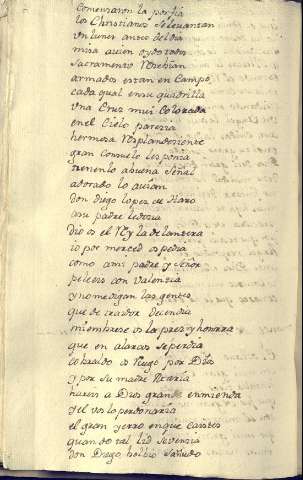 Comensaron la porfia
los Christianos se levantan
Un lunes antes del dia
misa avien oydo todos
Sacramento Resebian
armados estan en Campo
cada qual en su quadrilla
Una Cruz mui Colorada
en el Cielo parezia
hermosa Resplandeziente
gran Consuelo les ponia
tienenlo abuena Señal
adorado lo avian
Don Diego lopez de Haro
asu padre le dezia
Dio os el Rey la delantera
io por merced os pedia
como a mi padre y Señor
peleeis con Valentia
y no me digan las gentes
que de traidor decendia
miembrese os la prez y honrra
que en alarcos se perdia
cobraldo os Ruego por Dios
y por su madre Maria
hareis a Dios grande enmienda
y el vos lo perdonaria
el gran yerro en que caistes
quando tal lid se vencia
Don Diego bolbio Sañudo